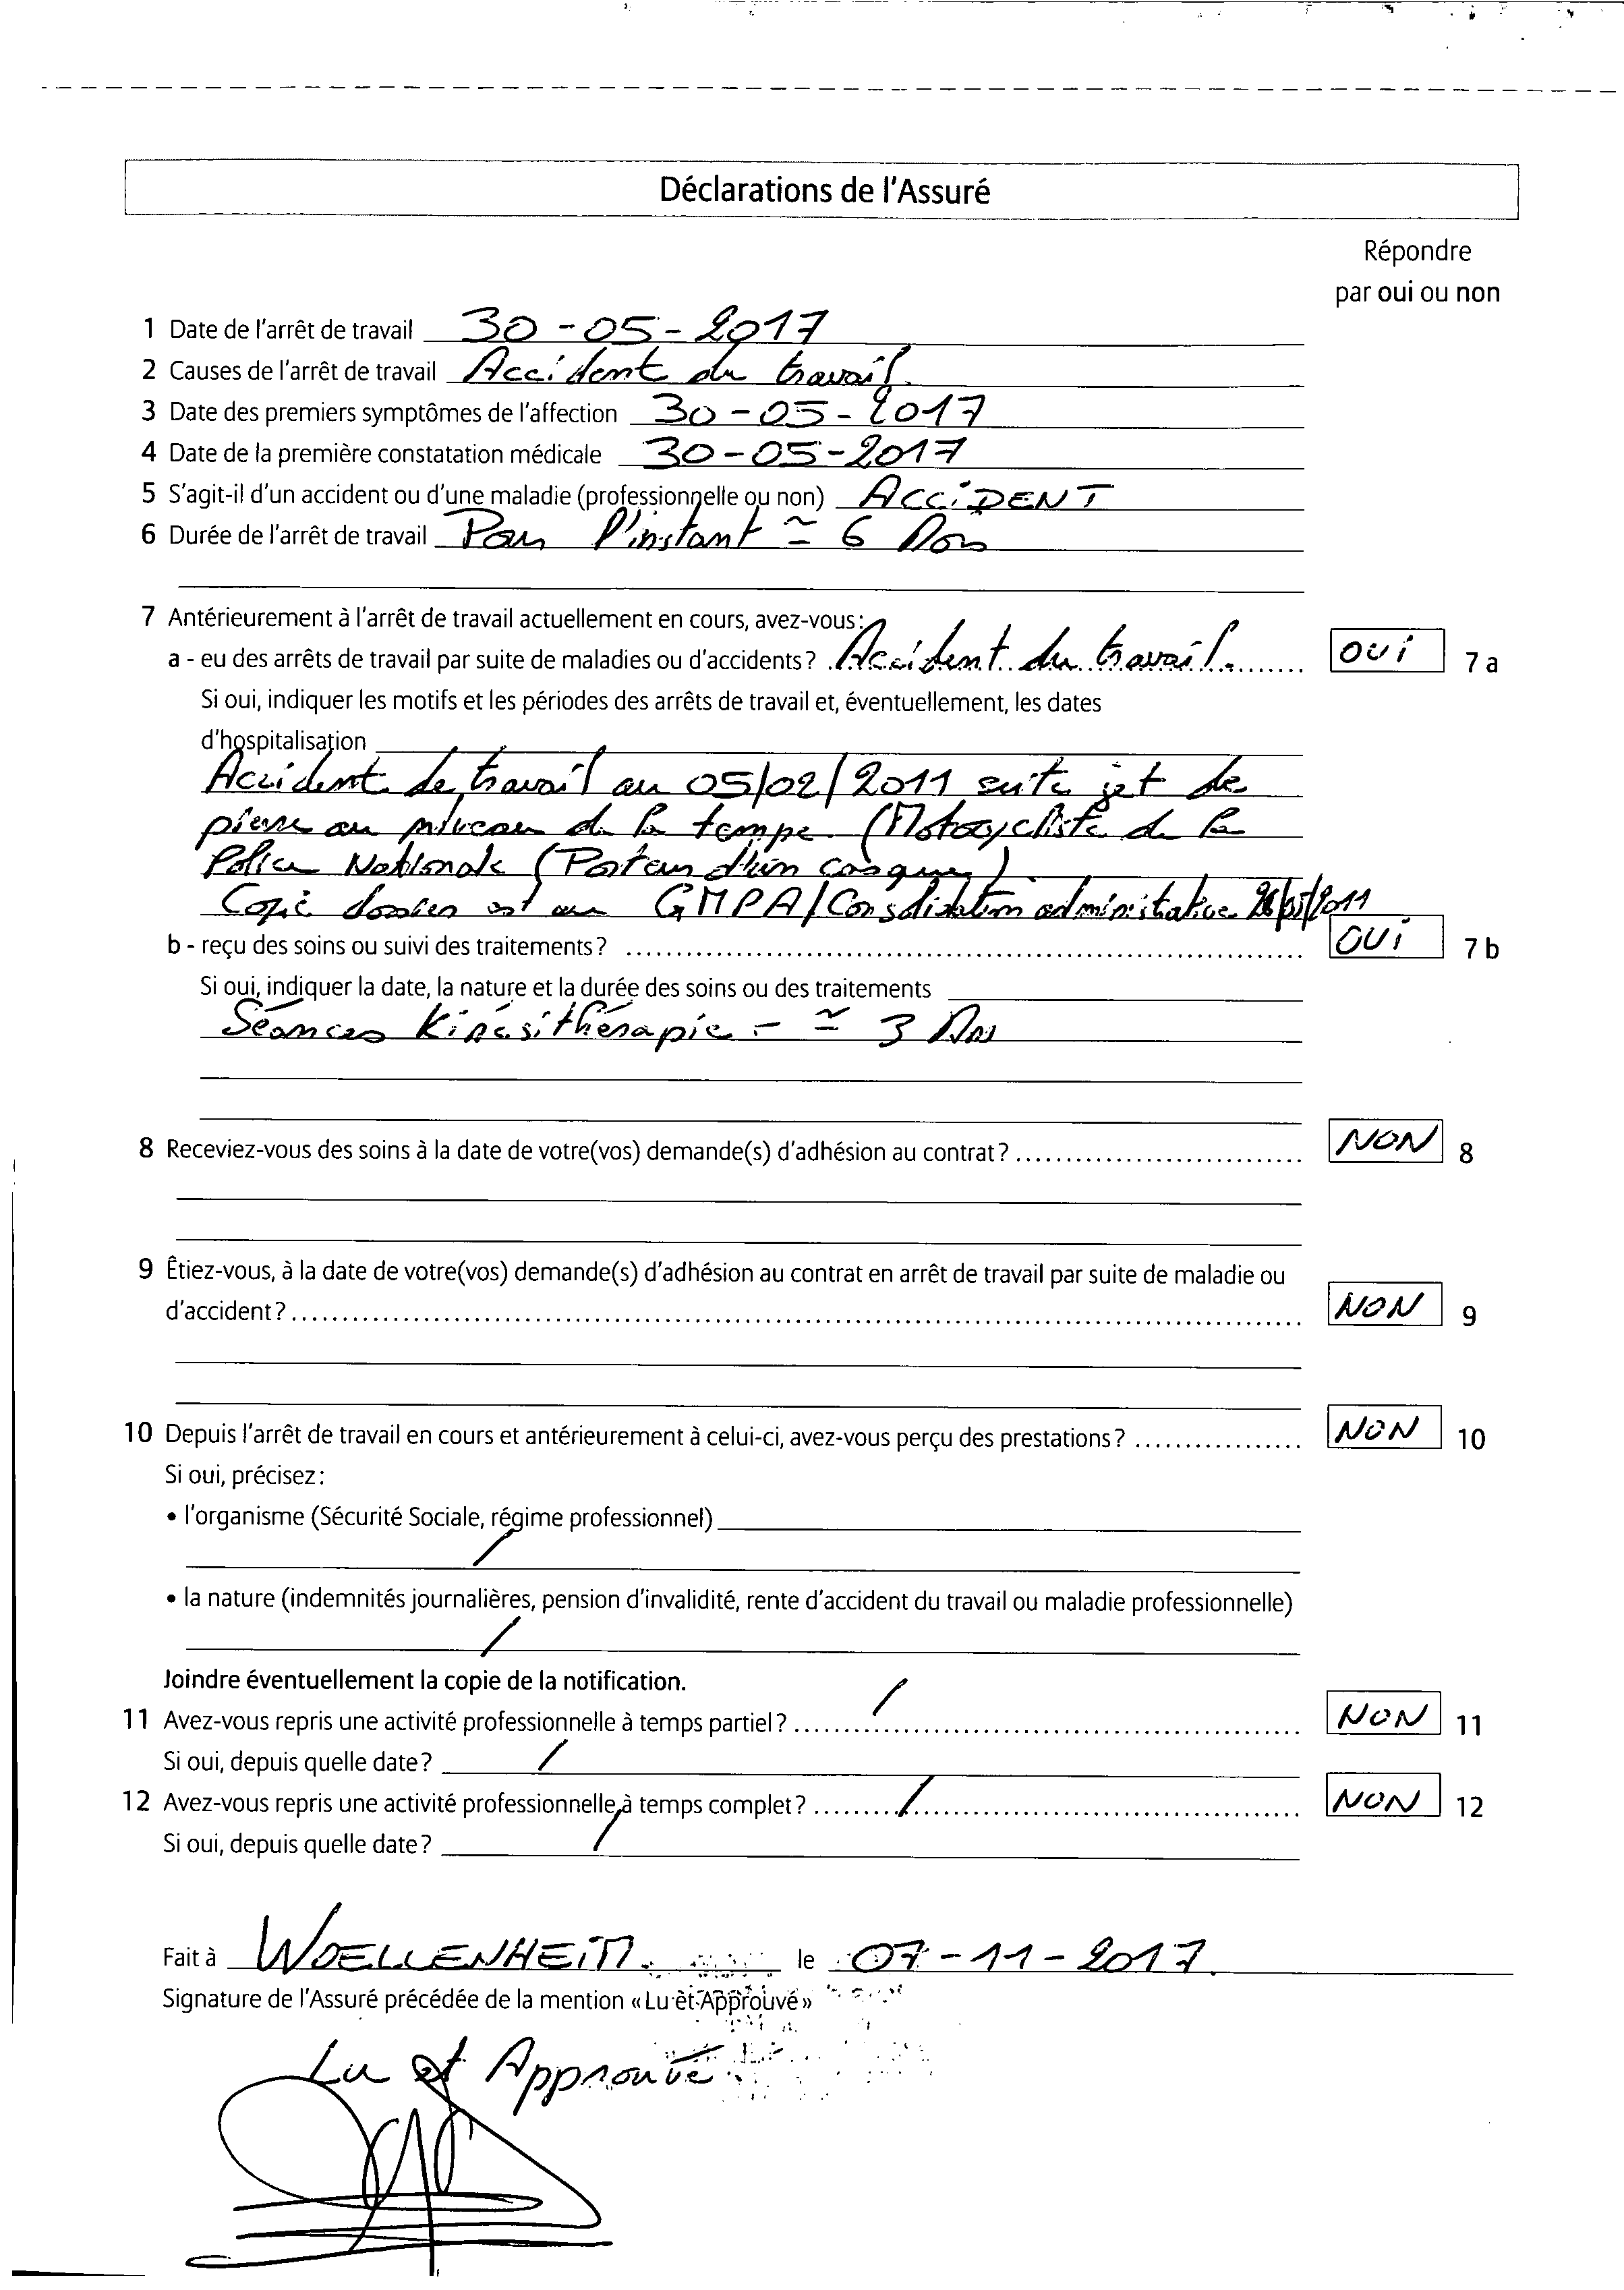 Déclarations de l'Assuré
Répondre
par oui ou non
1 Date de l'arrêt de travail 30-05-2017
2 Causes de l'arrêt de travail Accident du travail.
3 Date des premiers symptômes de l'affection 30-05-2017
4 Date de la première constatation médicale 30-05-2017
5 S'agit-il d'un accident ou d'une maladie (professionnelle ou non) ACCiDENT
6 Durée de l'arrêt de travail Pour l'instant ≃ 6 Mois
7 Antérieurement à l'arrêt de travail actuellement en cours, avez-vous:
a - eu des arrêts de travail par suite de maladies ou d'accidents? Accident du travail. OUi 7 a
Si oui, indiquer les motifs et les périodes des arrêts de travail et, éventuellement, les dates
d'hospitalisation
Accident de travail au 05/02/2011 suite jet de
pierre au niveau de la tempe (Motocycliste de la
Police Nationale (Porteur d'un casque)
Copie dossier est au GMPA/Consolidation administrative /2011
b - reçu des soins ou suivi des traitements? OUi 7 b
Si oui, indiquer la date, la nature et la durée des soins ou des traitements
Séances Kinésithérapie - ≃ 3
8 Receviez-vous des soins à la date de votre(vos) demande(s) d'adhésion au contrat? NON 8
9 Êtiez-vous, à la date de votre(vos) demande(s) d'adhésion au contrat en arrêt de travail par suite de maladie ou
d'accident? NON 9
10 Depuis l'arrêt de travail en cours et antérieurement à celui-ci, avez-vous perçu des prestations? NON 10
Si oui, précisez:
• l'organisme (Sécurité Sociale, régime professionnel)
/
• la nature (indemnités journalières, pension d'invalidité, rente d'accident du travail ou maladie professionnelle)
/
Joindre éventuellement la copie de la notification.
11 Avez-vous repris une activité professionnelle à temps partiel? / NON 11
Si oui, depuis quelle date? /
12 Avez-vous repris une activité professionnelle à temps complet? / NON 12
Si oui, depuis quelle date? /
Fait à WOELLENHEIM. le 07-11-2017.
Signature de l'Assuré précédée de la mention « Lu et Approuvé »
Lu et Approuvé